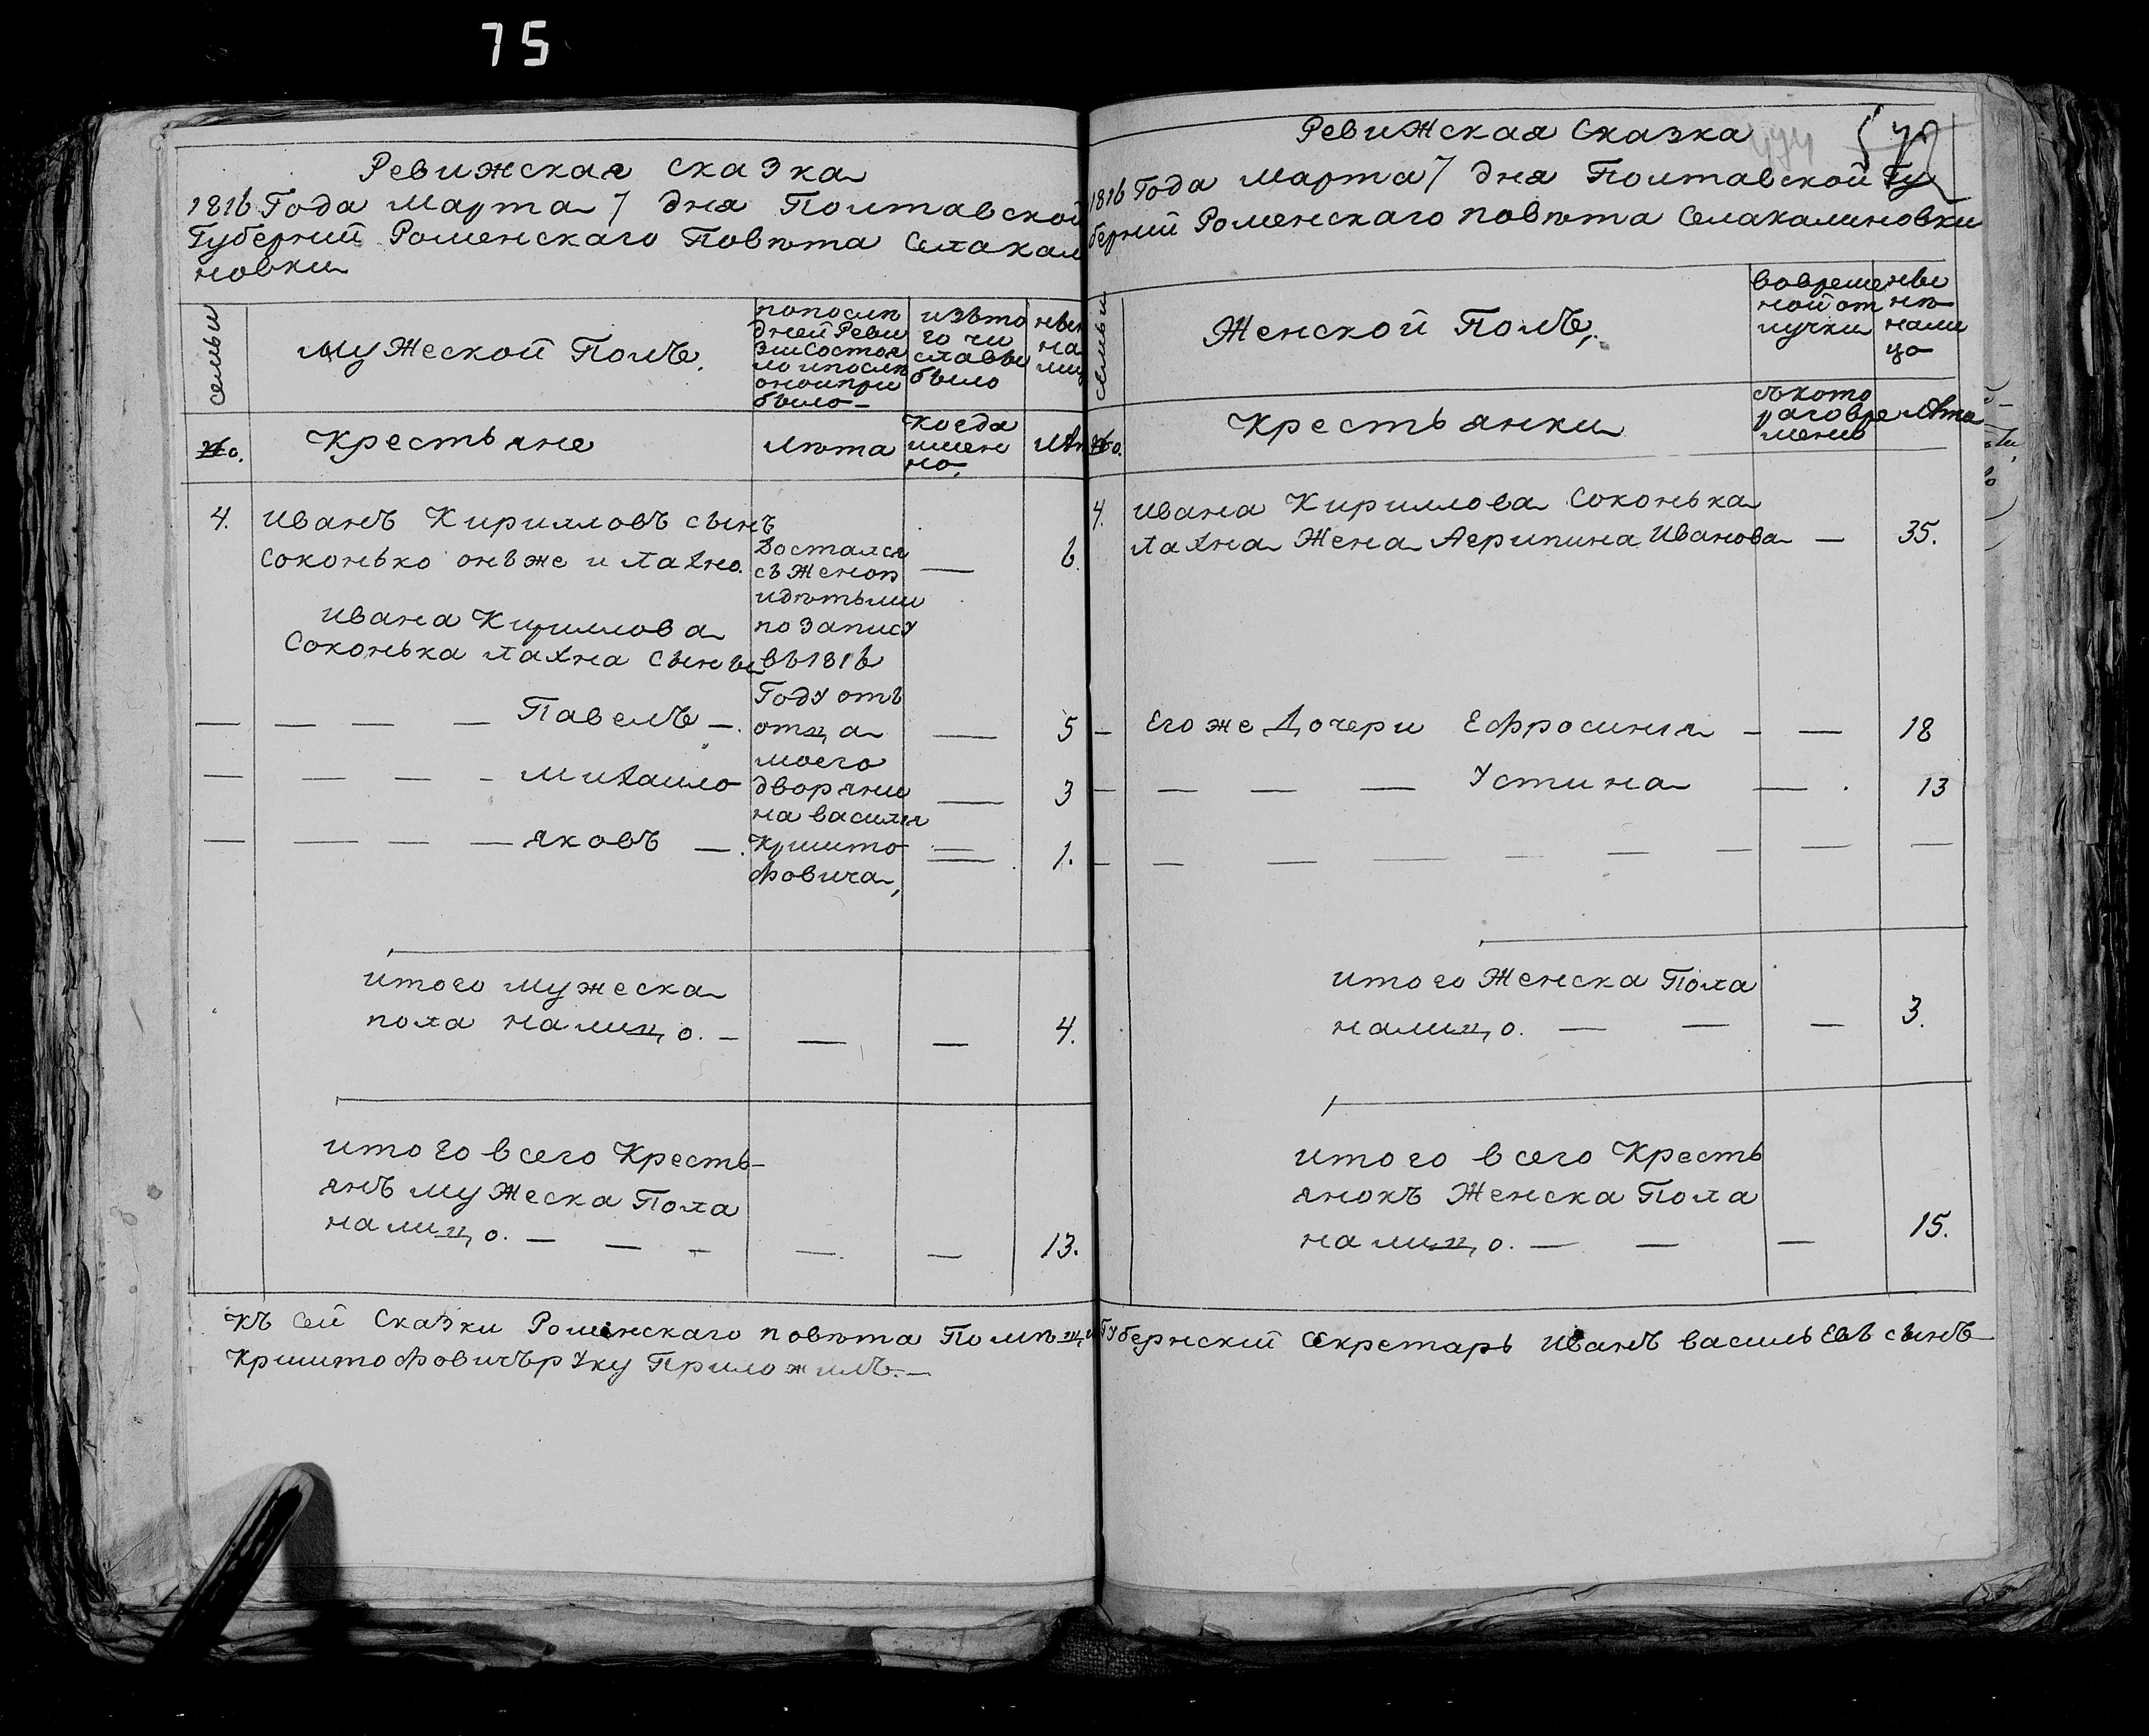 75
Ревижская сказка
1816 Года марта 7 дня Полтавской
Губерний Роменского Повѣта Села кали
новки
семьи
мужеской Полъ.
попослѣ
дней Реви
зии состоя
ло и послѣ
оной при
было
изъ то
го чи
сла вы
было
ны
на
лиц
№о.
Крестьяне
лѣта
Когда
имен
но
Лѣт
4.
иванъ Кирилловъ сынъ
Соконько онъ же и лахно.
Достался
съ женою
и дѣтьми
по запису
въ 1816
Году отъ
отца
моего
дворяни
на василия
Кришто
фовича,
—
6.
ивана Кириллова
Соконька лахна сыны
— — — — Павелъ — — 5
— — — — михаило — 3
— — — — яковъ — — 1.
итого мужеска
пола налицо. — — — 4.
итого всего Кресть-
янъ мужеска Пола
налицо. — — — — — 13.
Ревижская Сказка
1816 Года марта 7 дня Полтавской Гу
берний Роменскаго повѣта Села калиновки
семьи
Женской Полъ,
во времен
ной от
лучки
ны
нѣ
нали
цо
№о.
Крестьянки
съ кото
раго вре
мени
лѣта
4.
ивана Кириллова Соконька
лахна Жена Агрипина Иванова — 35.
— Его же Дочери Ефросиния — — 18
— — — — Устина — 13
— — — — — — — — —
итого Женска Пола
налицо. — — — 3.
итого всего Кресть
янокъ Женска Пола
налицо. — — — 15.
Къ сей Сказки Роменскаго повѣта Помѣщи Губернский секретарь иванъ васильевъ сынъ
Криштофовичъ руку Приложилъ. —